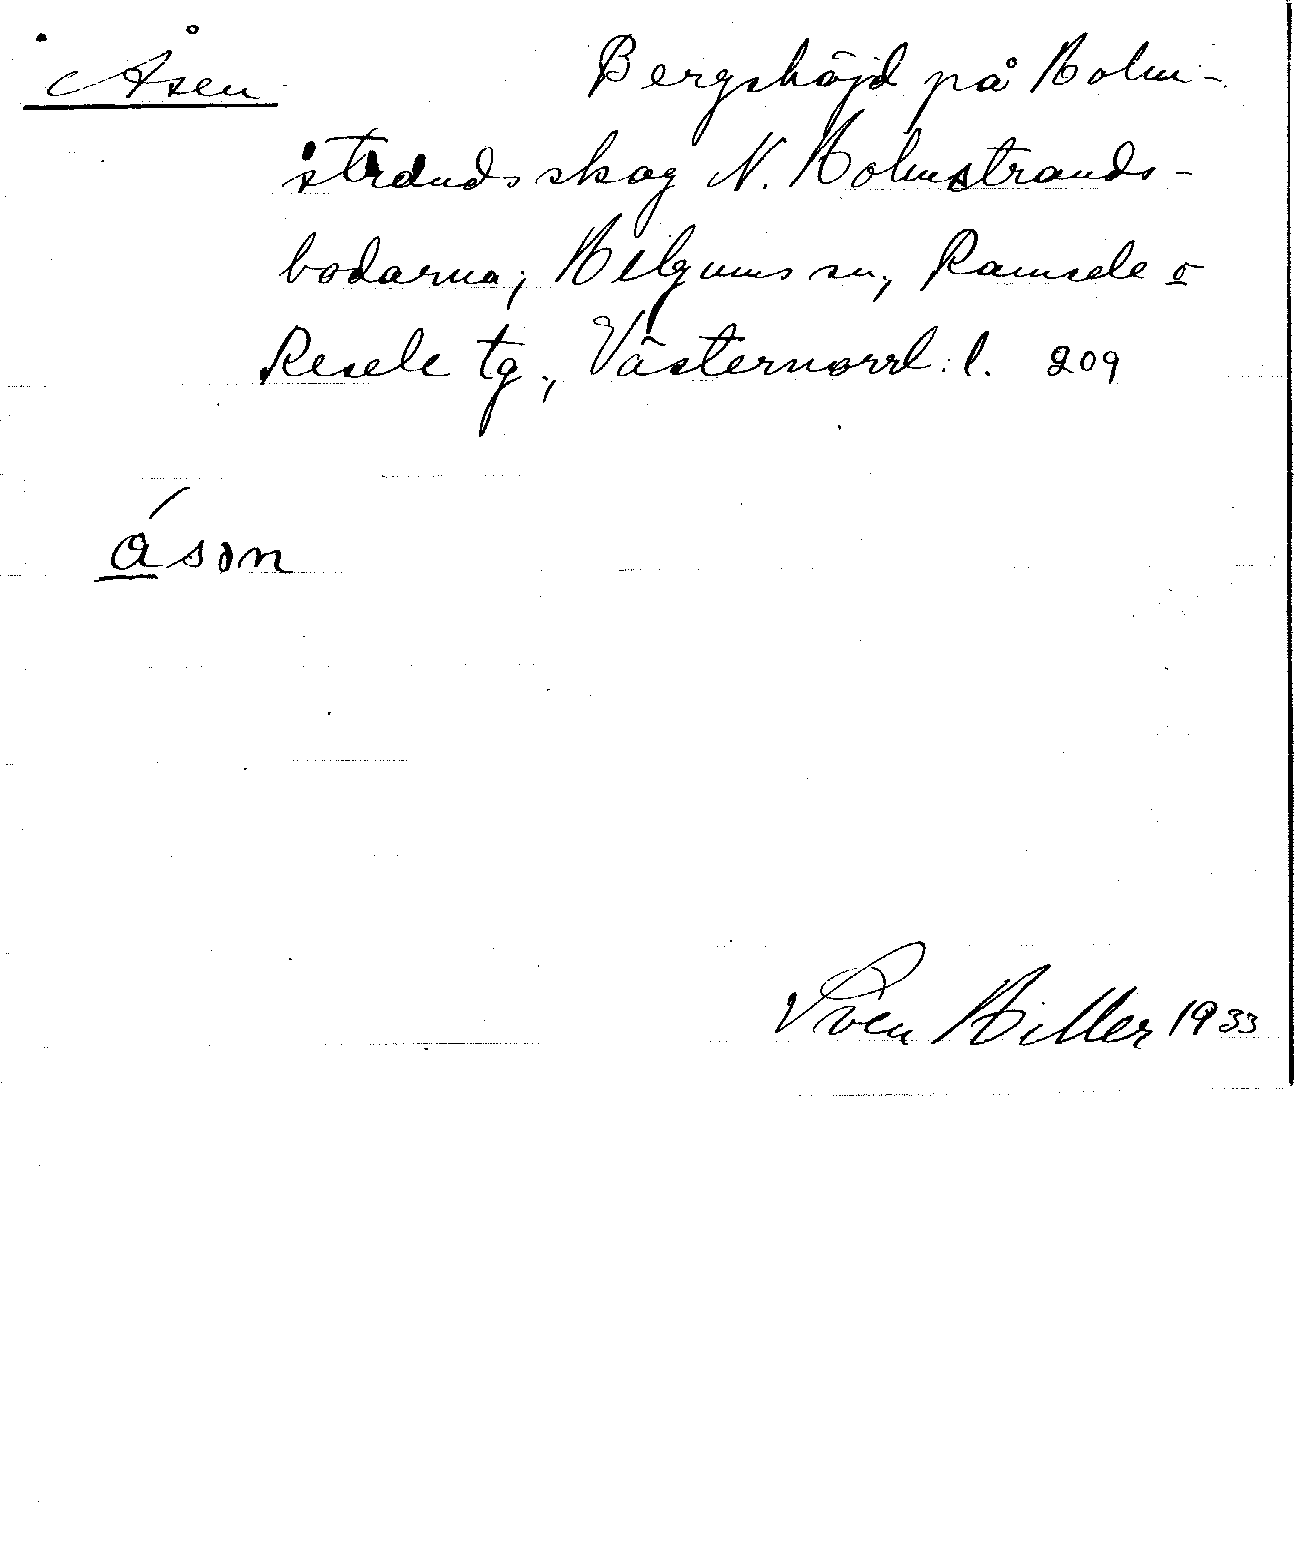 Åsen Bergshöjd på Holm-
strands skog N. Holmstrands-
bodarna, Helgums sn, Ramsele o
Resele tg, Västernorrl: l. 209
åsən
Sven Hiller 1933